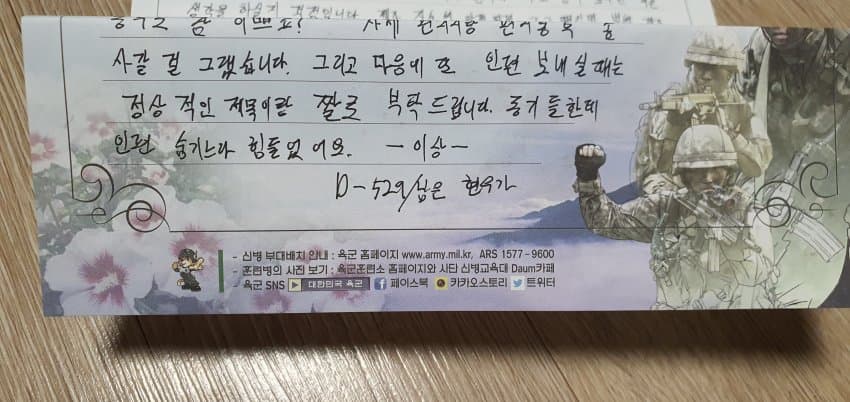 생각을 하습지
참 이쁘죠!
사갈 걸 그랬습니다. 그리고 다음에 또 인편 보내실 때는
정상 적인 제목이랑 짤로 부탁드립니다. 동기들한테
인편 숨기느라 힘들었어요. - 이상 -
D-529/싶은 현우가
- 신병 부대배치 안내 : 육군 홈페이지 www.army.mil.kr, ARS 1577-9600
- 훈련병의 사진 보기 : 육군훈련소 홈페이지와 사단 신병교육대 Daum카페
- 육군 SNS 대한민국 육군 페이스북 카카오스토리 트위터